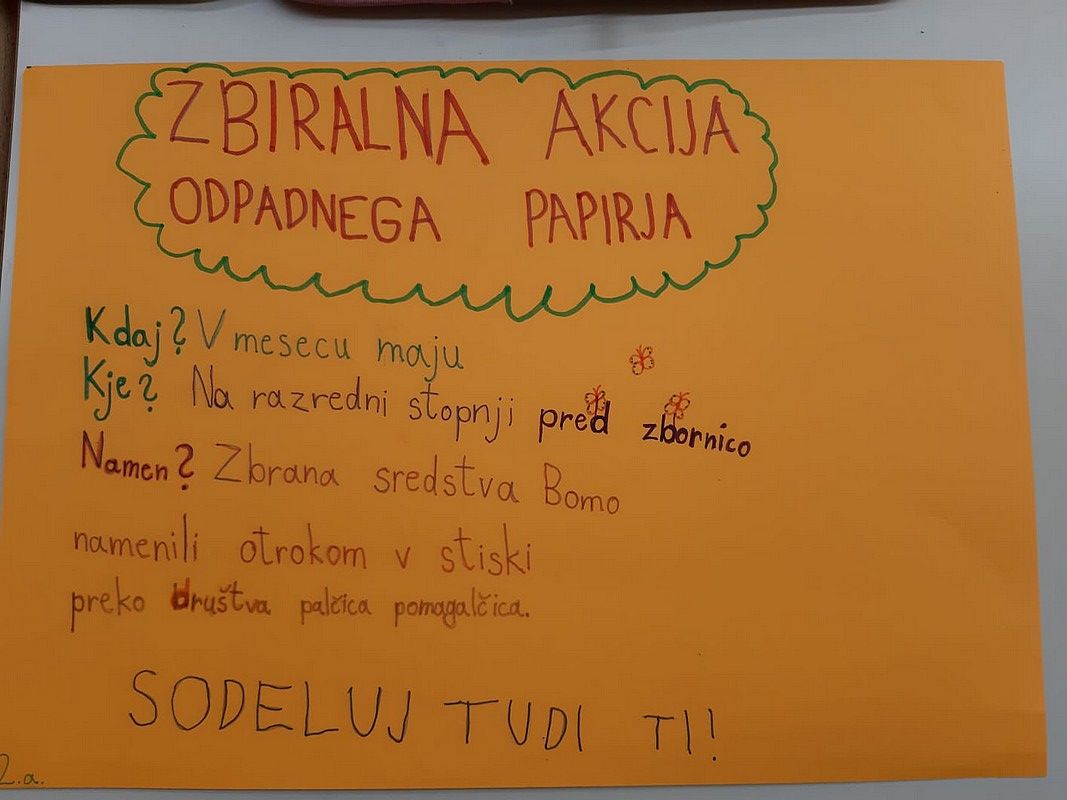 ZBIRALNA AKCIJA
ODPADNEGA PAPIRJA
Kdaj? V mesecu maju
Kje? Na razredni stopnji pred zbornico
Namen? Zbrana sredstva Bomo
namenili otrokom v stiski
preko društva palčica pomagalčica.
SODELUJ TUDI TI!
2.a.